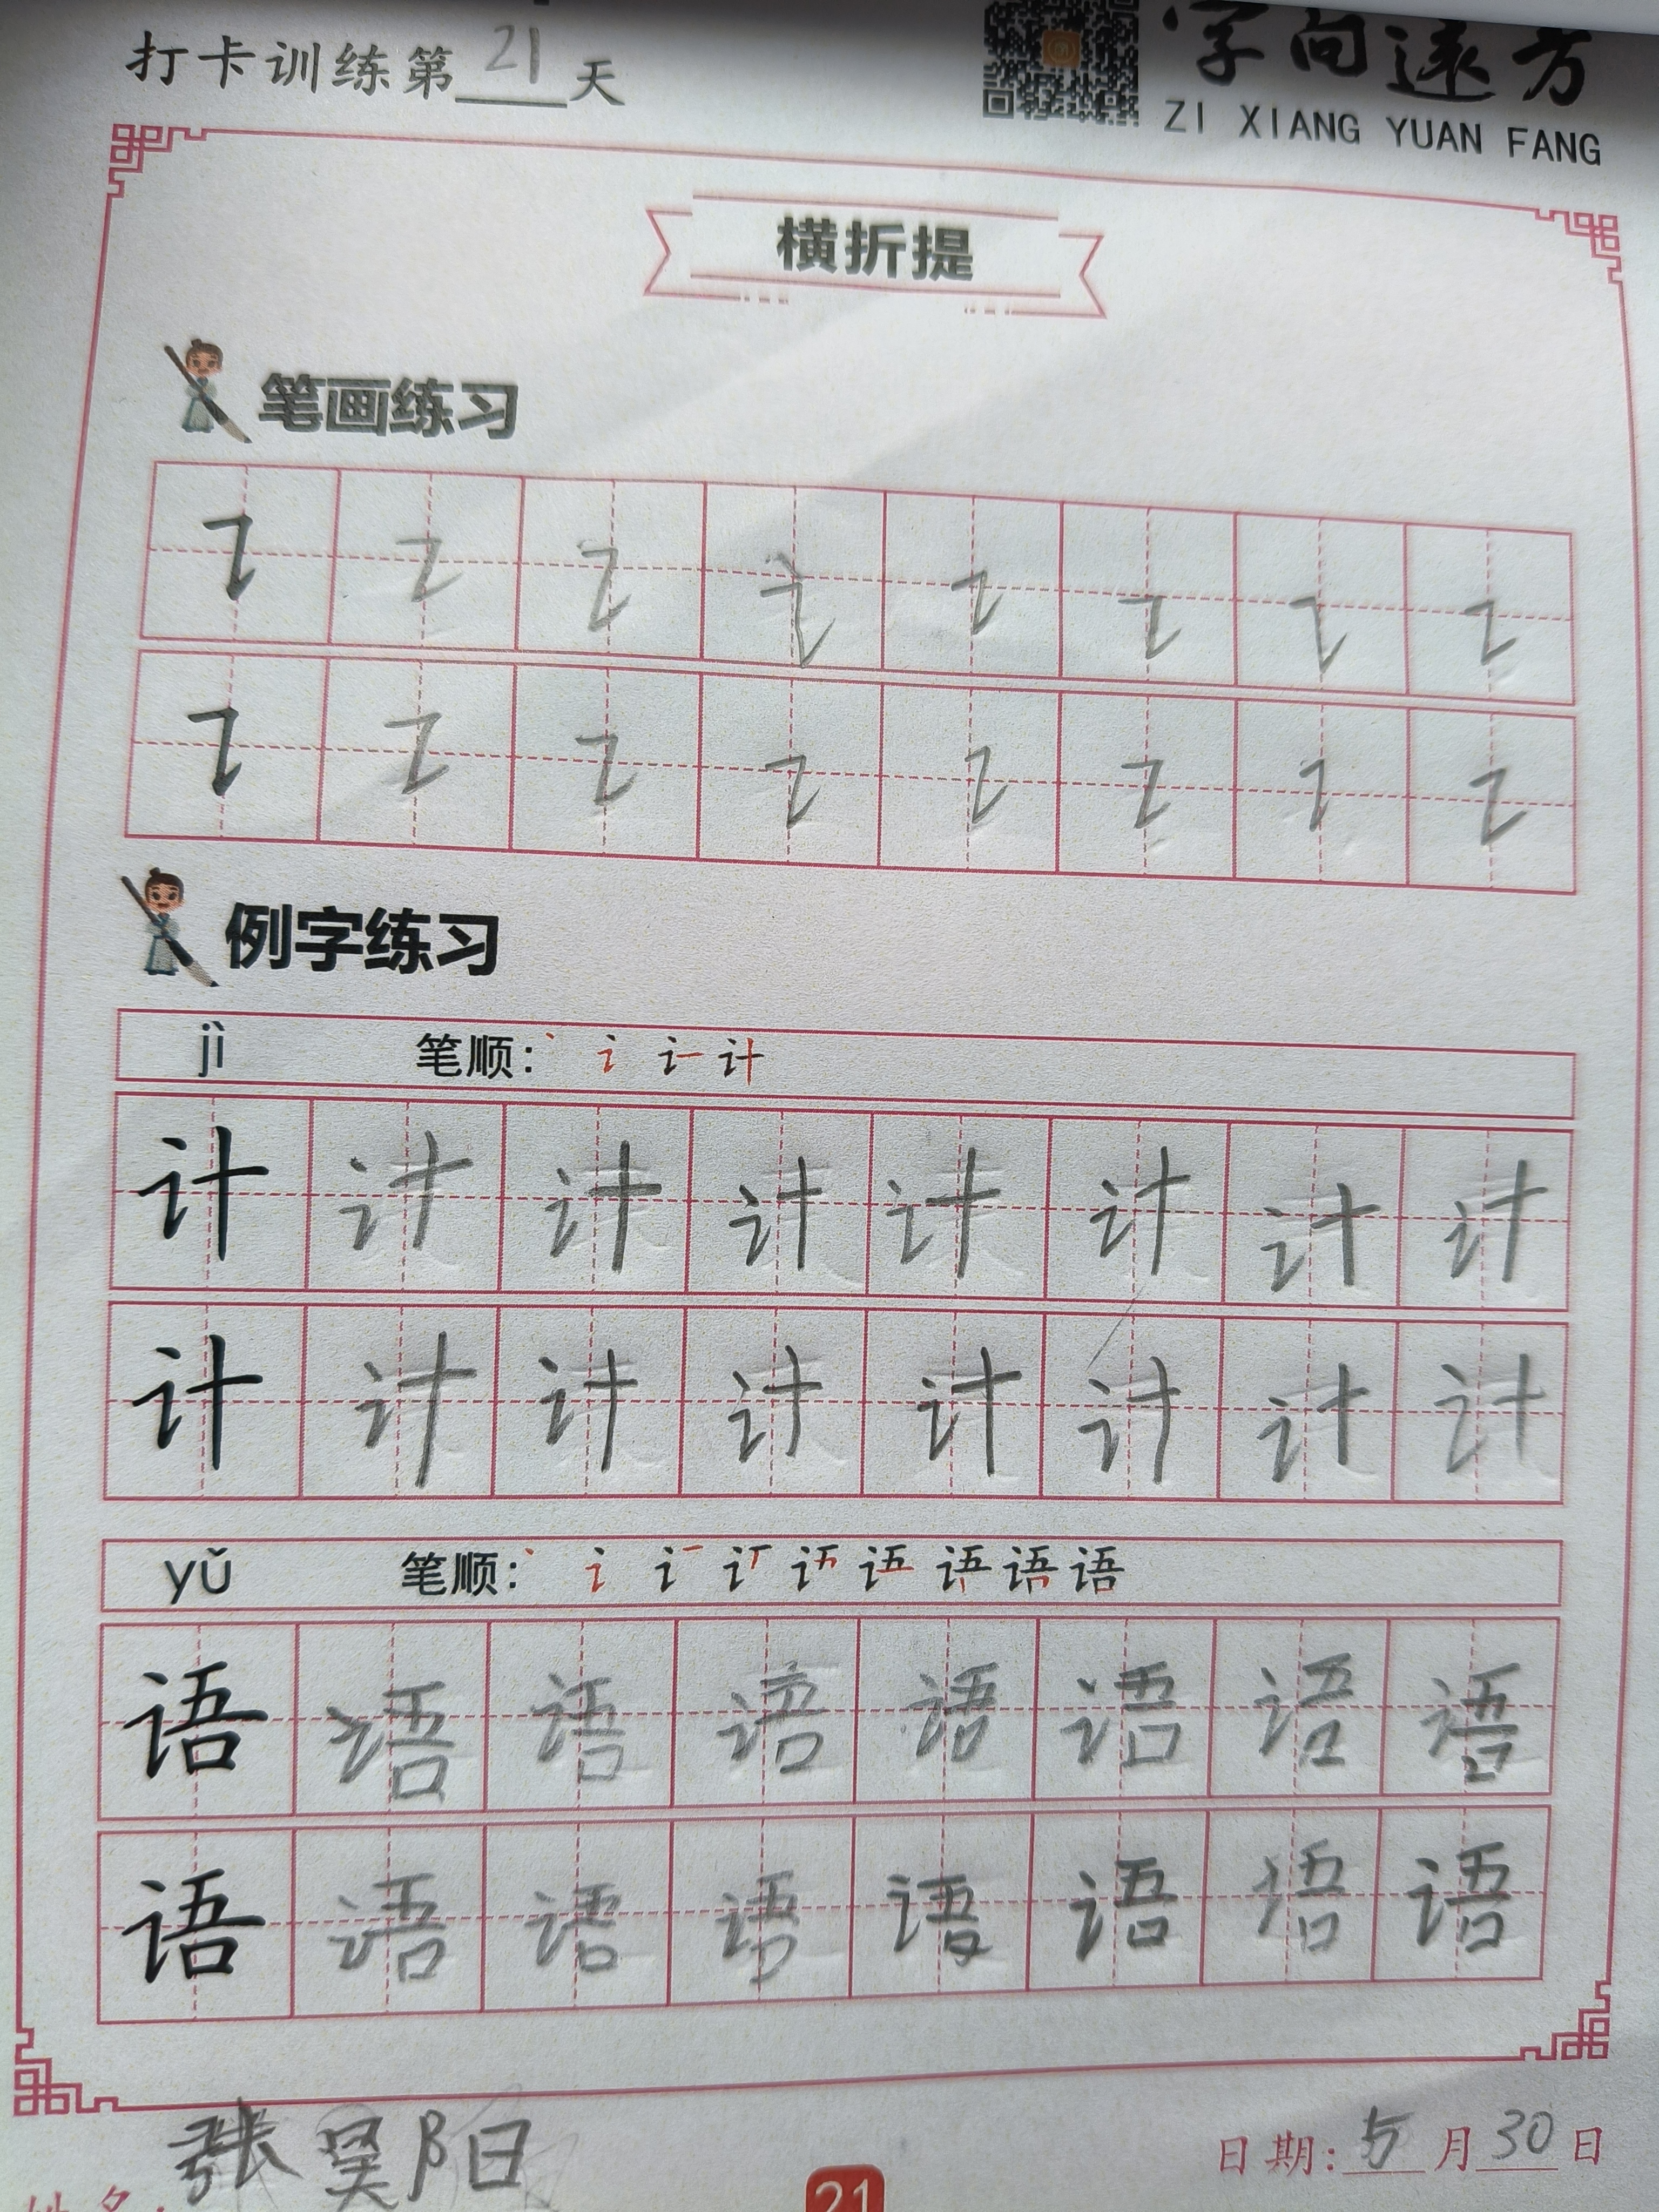 打卡训练第21天
字向远方
ZI XIANG YUAN FANG
横折提
笔画练习
例字练习
jì 笔顺：
计 计 计 计 计 计 计 计
计 计 计 计 计 计 计 计
yǔ 笔顺： 语
语 语 语 语 语 语 语 语
语 语 语 语 语 语 语 语
张昊阳
日期：5月30日
21